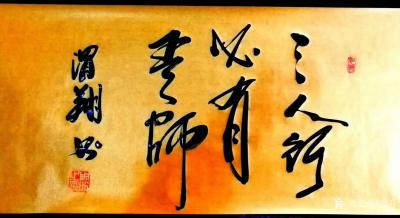 三人行
必有
吾師
渭翔书